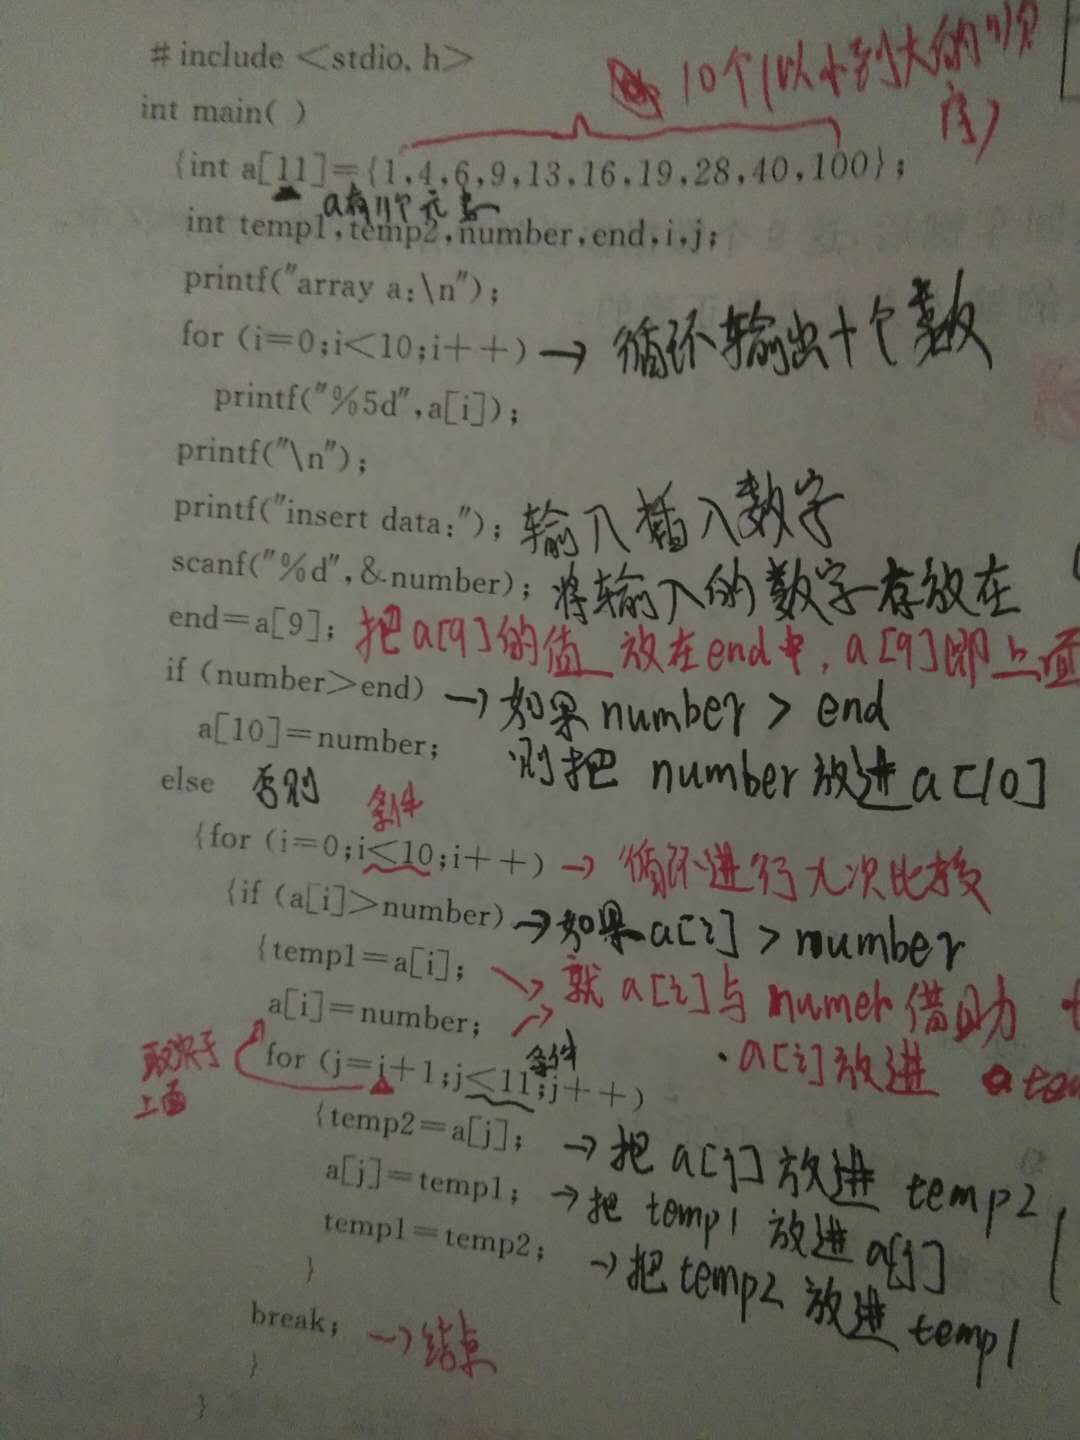 #include <stdio.h>
10个(从小到大的顺
序)
int main( )
{int a[11]={1,4,6,9,13,16,19,28,40,100};
a有11个元素
int temp1,temp2,number,end,i,j;
printf("array a:\n");
for (i=0;i<10;i++) → 循环输出十个数
printf("%5d",a[i]);
printf("\n");
printf("insert data:"); 输入插入数字
scanf("%d",&number); 将输入的数字存放在
end=a[9]; 把a[9]的值 放在end中, a[9]即上面
if (number>end) → 如果 number > end
a[10]=number; 则把 number 放进 a[10]
else 否则
条件
{for (i=0;i<10;i++) → 循环进行九次比较
{if (a[i]>number) → 如果 a[i] > number
{temp1=a[i]; 就 a[i] 与 numer 借助
a[i]=number;
条件
取决于
上面
for (j=i+1;j<11;j++) ·a[i] 放进
{temp2=a[j]; → 把 a[j] 放进 temp2
a[j]=temp1; → 把 temp1 放进 a[j]
temp1=temp2; → 把 temp2 放进 temp1
}
break; → 结束
}
}